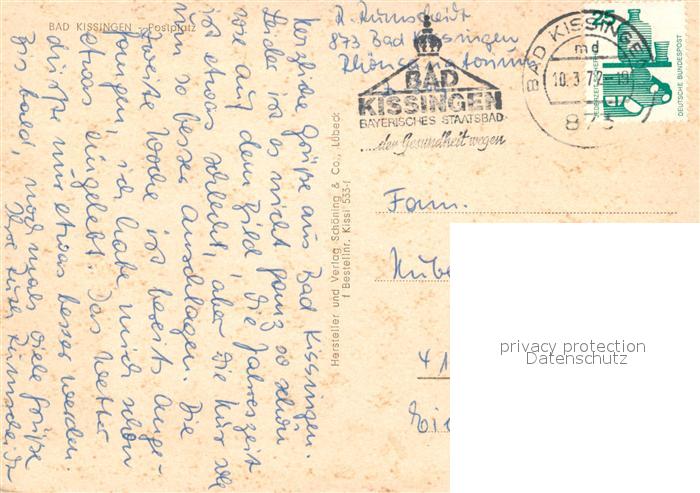 BAD KISSINGEN - Postplatz
R. Rumscheidt
873 Bad Kissingen
Rhönsanatorium
BAD
KISSINGEN
BAYERISCHES STAATSBAD
...der Gesundheit wegen
BAD KISSINGEN
md
10.3.72-19
873
25
DEUTSCHE BUNDESPOST
Herzliche Grüße aus Bad Kissingen.
Leider ist es nicht ganz so schön
wie auf dem Bild. Die Jahreszeit
ist etwas schlecht, aber die Kur soll
um so besser anschlagen. Die
zweite Woche ist bereits ange-
fangen, ich habe mich schon
etwas eingelebt. Das Wetter
dürfte nur etwas besser werden.
Bis bald, nochmals viele Grüße
Ihre Luise Rumscheidt
Hersteller und Verlag Schöning & Co., Lübeck
f Bestellnr. Kissi 533-f
Fam.
41
privacy protection
Datenschutz